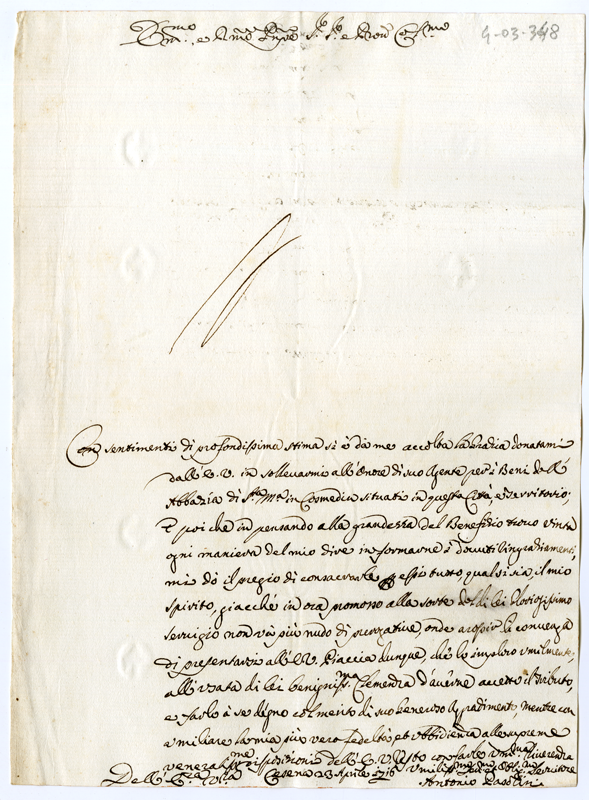 Em.mo e R.mo Sig.re Sig.re e Pron Col.mo
4-03-348
Con sentimenti di profondissima stima si è da me accolta la Grazia donatami
dall'E. V. in sollevarmi all'Onore di suo Agente per i Beni dell'
Abbazia di S.ta M.a in Cosmedin situati in questa Città, e Territorio;
E poi che in pensando alla grandezza del Benefizio trovo vinta
ogni maniera del mio dire in formarne i dovuti ringraziamenti,
mi dò il pregio di consacrarle tutto, qual si sia, il mio
spirito, giacchè in ora promosso alla sorte del di lei Gloriosissimo
servizio non và più nudo di prerogative, onde la
di presentarsi all'E.V. Piaccia dunque, che lo imploro umilmente,
all'usata di lei benignis.ma Clemenza d'averne accetto il Tributo,
e farlo à se degno col merito di suo generoso Aggradimento, mentre con
umiliare la mia più vera fedeltà, et ubbidienza alle supreme
veneratis.me disposizioni dell'E. V. resto con farle um.ma riverenza
Dell'E.za V.ra
Cesena 23 Aprile 1716
Umilis.mo Servitore
Antonio